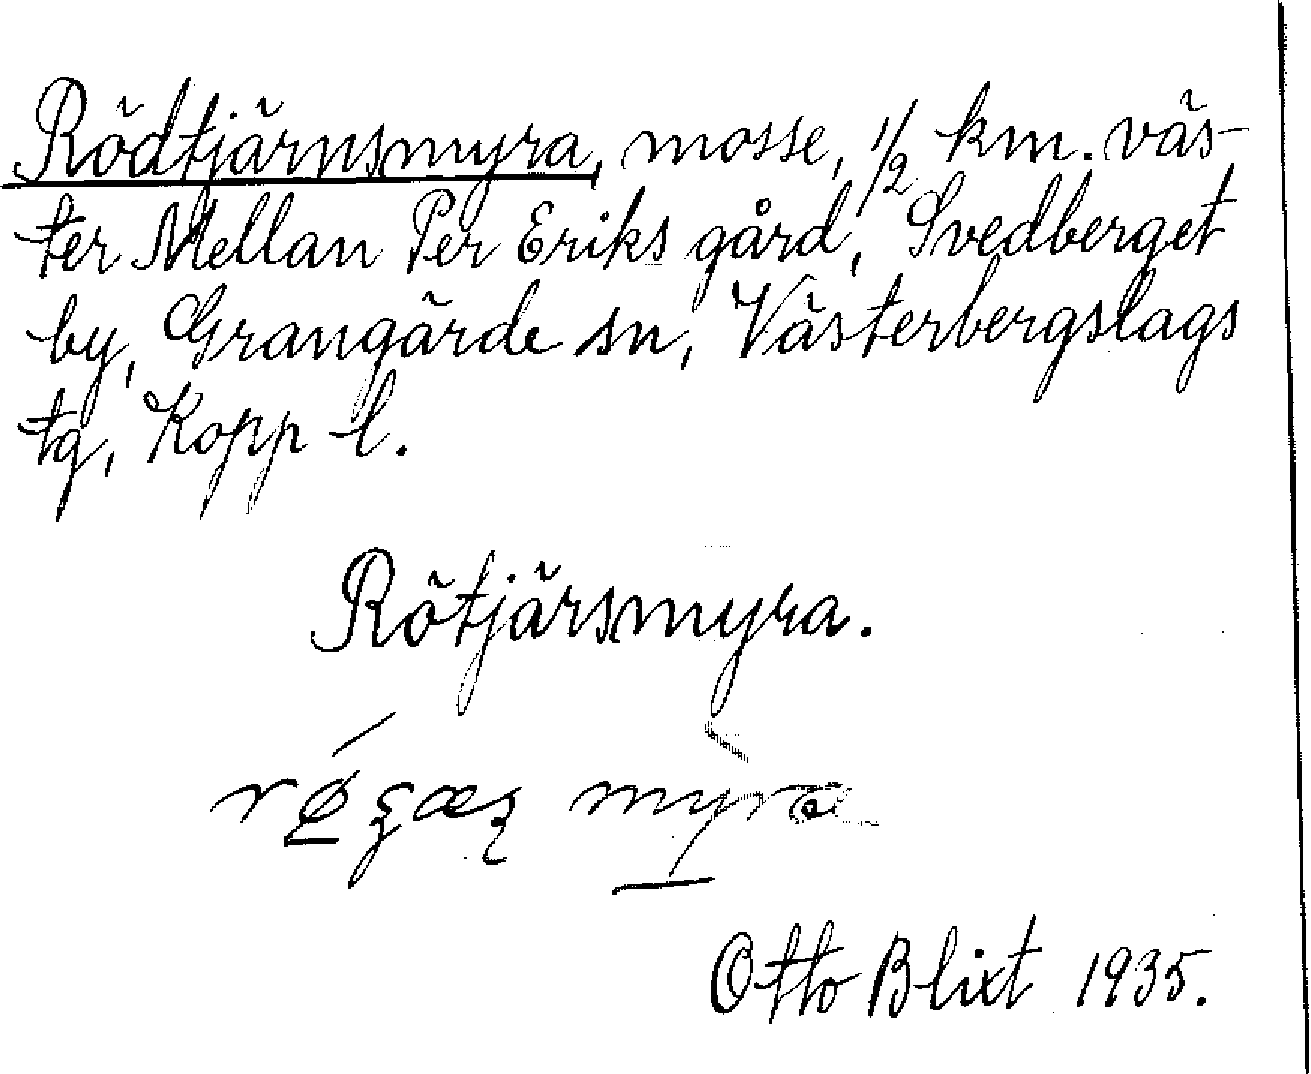 Rödtjärnsmyra, mosse, 1/2 km. väs-
ter Mellan Per Eriks gård, Svedberget
by, Grangärde sn, Västerbergslags
tg, Kopp l.
Rötjärsmyra.
myra
Otto Blixt 1935.